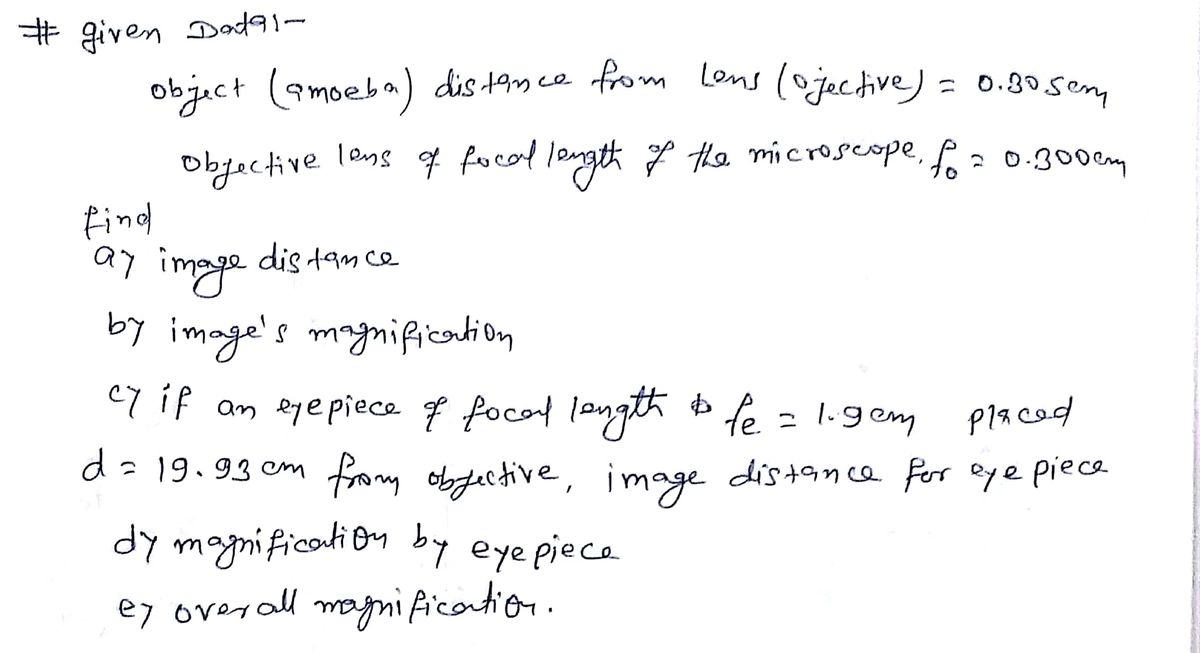 # given Data:-
object (amoeba) distance from Lens (ojective) = 0.305cm
Objective lens of focal length of the microscope, fo = 0.300cm
find
a) image distance
b) image's magnification
c) if an eyepiece of focal length fe = 1.9cm placed
d = 19.93 cm from objective, image distance for eye piece
d) magnification by eyepiece
e) overall magnification.